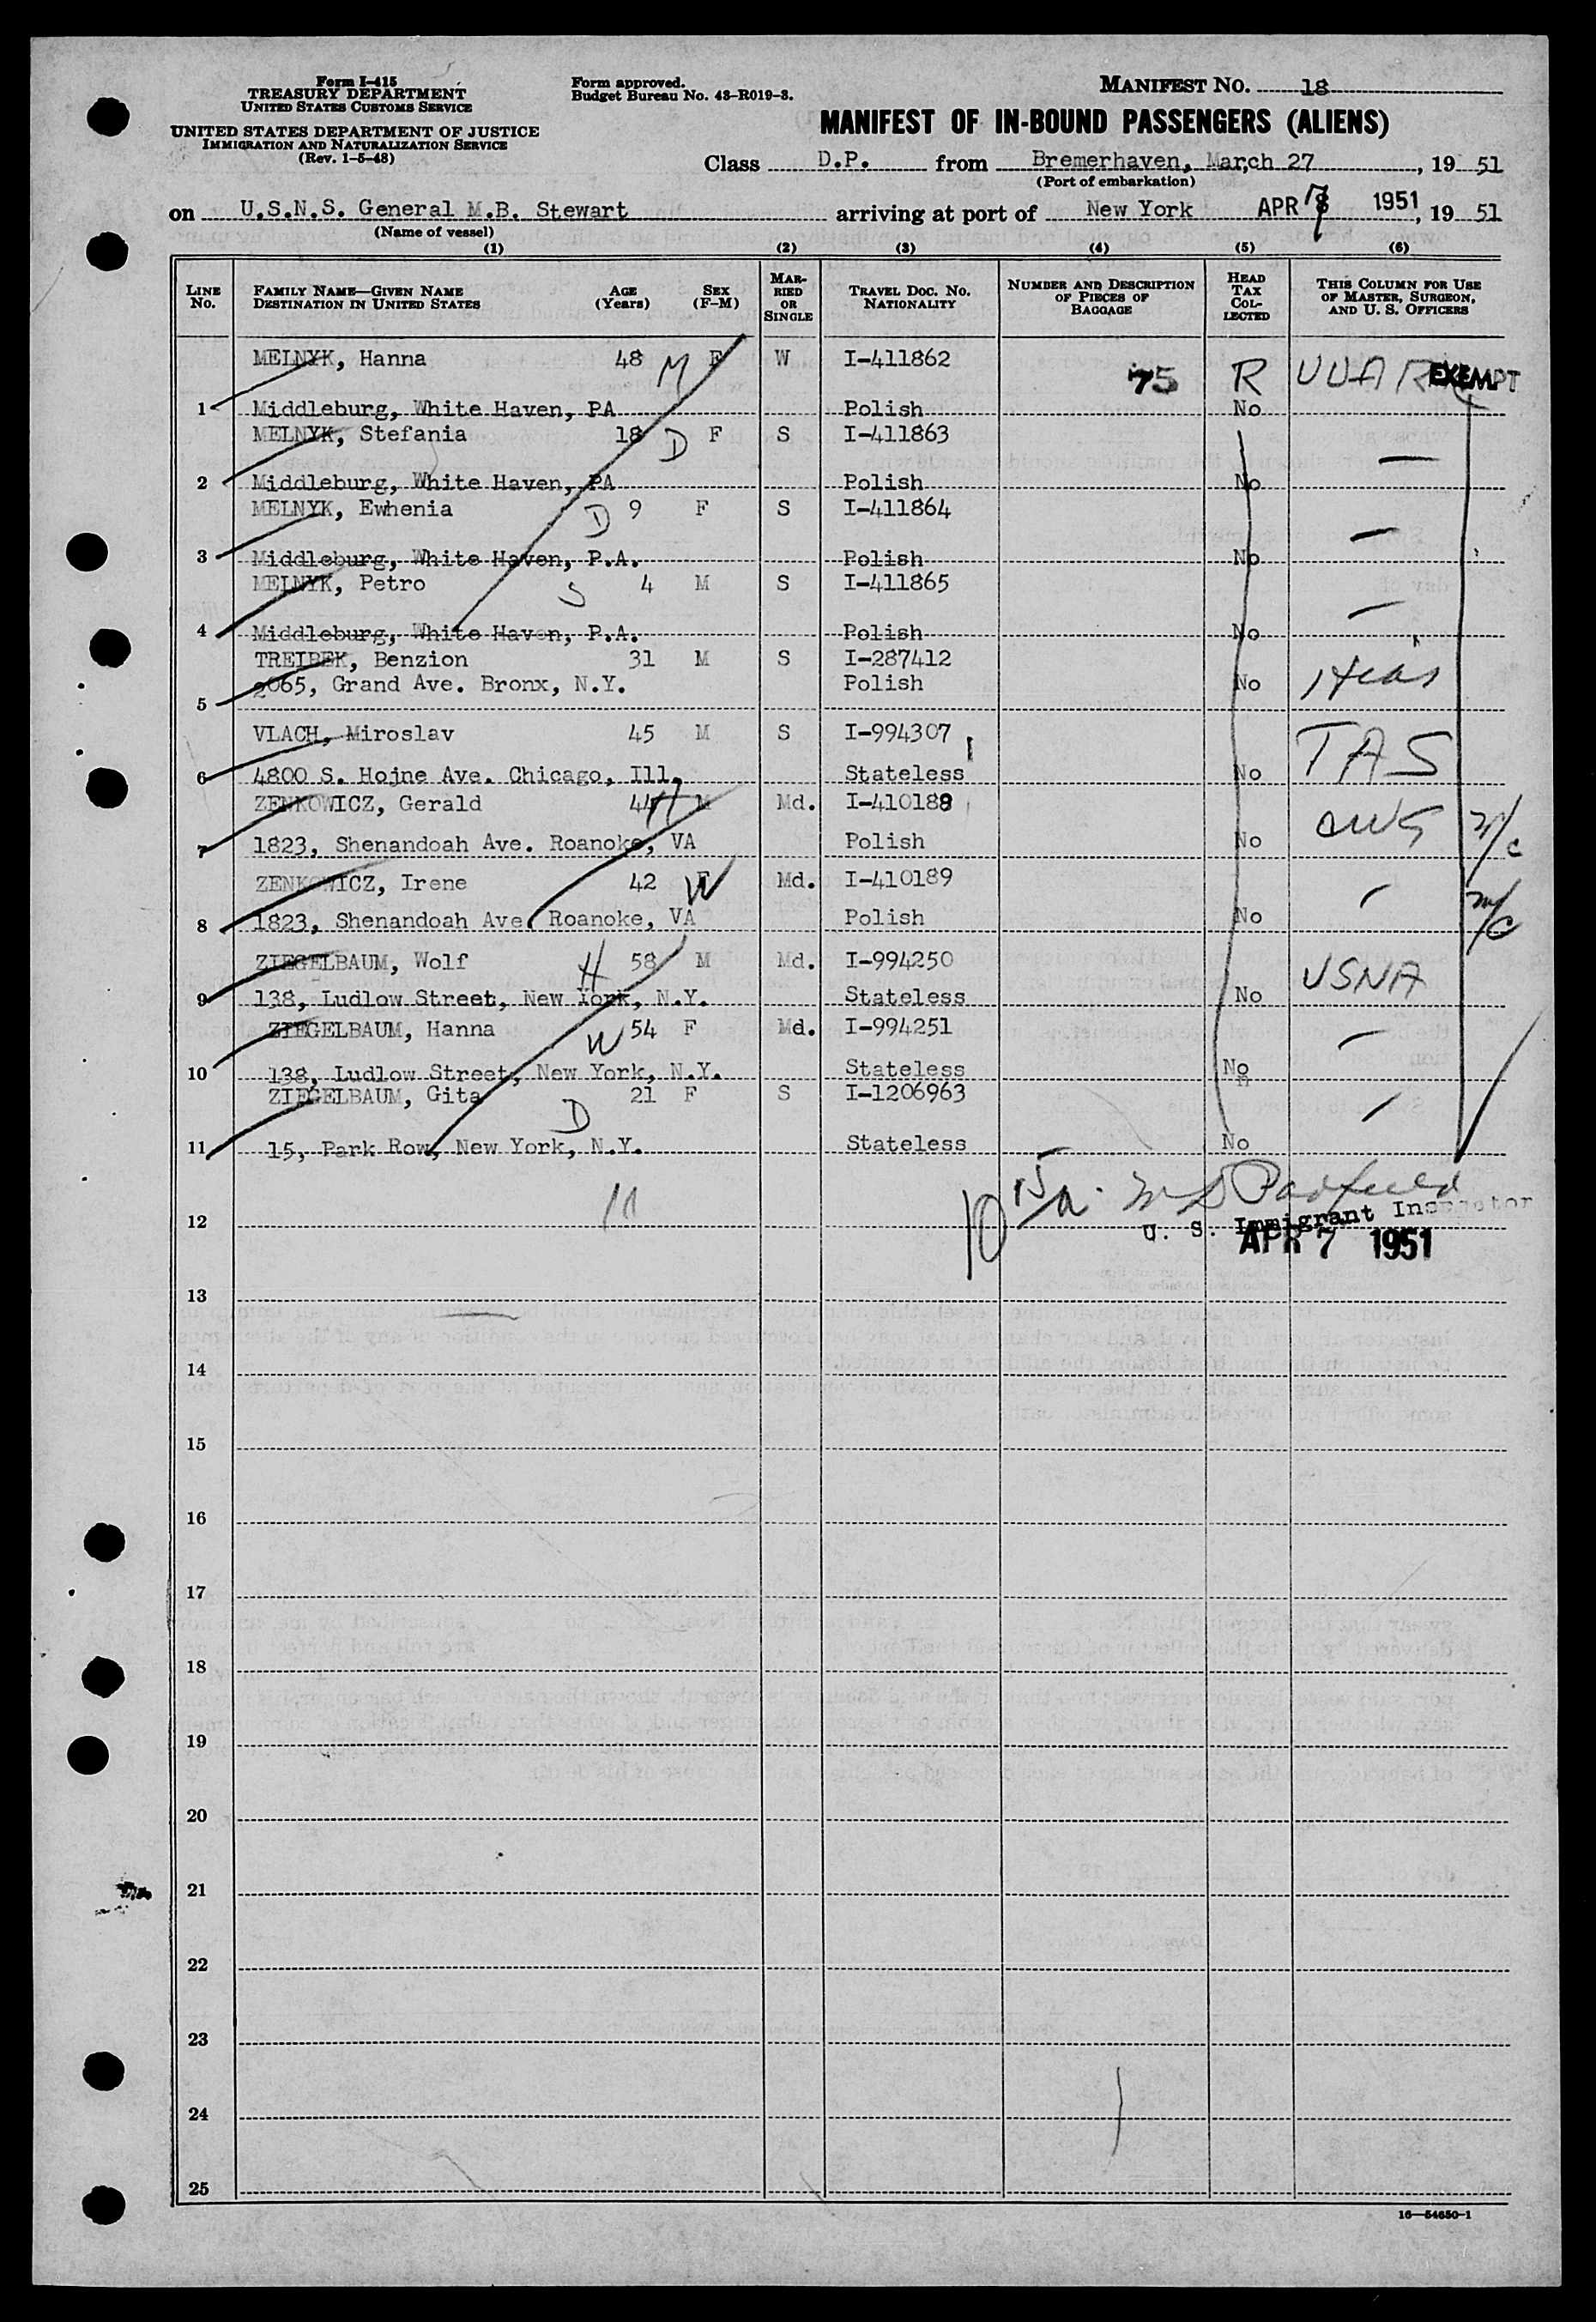 Form I-415
TREASURY DEPARTMENT
UNITED STATES CUSTOMS SERVICE
UNITED STATES DEPARTMENT OF JUSTICE
IMMIGRATION AND NATURALIZATION SERVICE
(Rev. 1-5-48)
Form approved.
Budget Bureau No. 43-R019-3.
MANIFEST NO. 18
MANIFEST OF IN-BOUND PASSENGERS (ALIENS)
Class D.P. from Bremerhaven, March 27, 19 51
(Port of embarkation)
on U.S.N.S. General M.B. Stewart arriving at port of New York APR 7 1951, 19 51
(Name of vessel)
(1) (2) (3) (4) (5) (6)
LINE No. FAMILY NAME—GIVEN NAME DESTINATION IN UNITED STATES AGE (Years) SEX (F-M) MARRIED OR SINGLE TRAVEL DOC. NO. NATIONALITY NUMBER AND DESCRIPTION OF PIECES OF BAGGAGE HEAD TAX COLLECTED THIS COLUMN FOR USE OF MASTER, SURGEON, AND U. S. OFFICERS
MELNYK, Hanna 48 M F W I-411862 75 R UUAR EXEMPT
1 Middleburg, White Haven, PA Polish No
MELNYK, Stefania 18 D F S I-411863
2 Middleburg, White Haven, PA Polish No
MELNYK, Ewhenia D 9 F S I-411864
3 Middleburg, White Haven, P.A. Polish No
MELNYK, Petro S 4 M S I-411865
4 Middleburg, White Haven, P.A. Polish No
TREIBEK, Benzion 31 M S I-287412
5 2065, Grand Ave. Bronx, N.Y. Polish No Hias
VLACH, Miroslav 45 M S I-994307 TAS
6 4800 S. Hojne Ave. Chicago, Ill. Stateless No
ZENKOWICZ, Gerald 44 H M Md. I-410188 CWS m/c
7 1823, Shenandoah Ave. Roanoke, VA Polish No
ZENKOWICZ, Irene 42 F W Md. I-410189 m/c
8 1823, Shenandoah Ave. Roanoke, VA Polish No
ZIEGELBAUM, Wolf H 58 M Md. I-994250 USNA
9 138, Ludlow Street, New York, N.Y. Stateless No
ZIEGELBAUM, Hanna W 54 F Md. I-994251
10 138, Ludlow Street, New York, N.Y. Stateless No
ZIEGELBAUM, Gita D 21 F S I-1206963
11 15, Park Row, New York, N.Y. Stateless No
11
U. S. Immigrant Inspector
APR 7 1951
12
13
14
15
16
17
18
19
20
21
22
23
24
25
16—54650-1